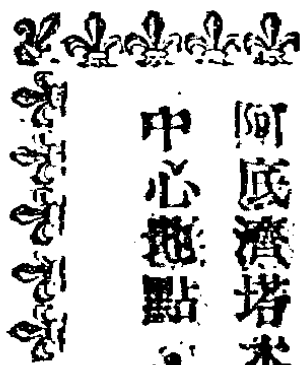 阿底濟塔
中心地點